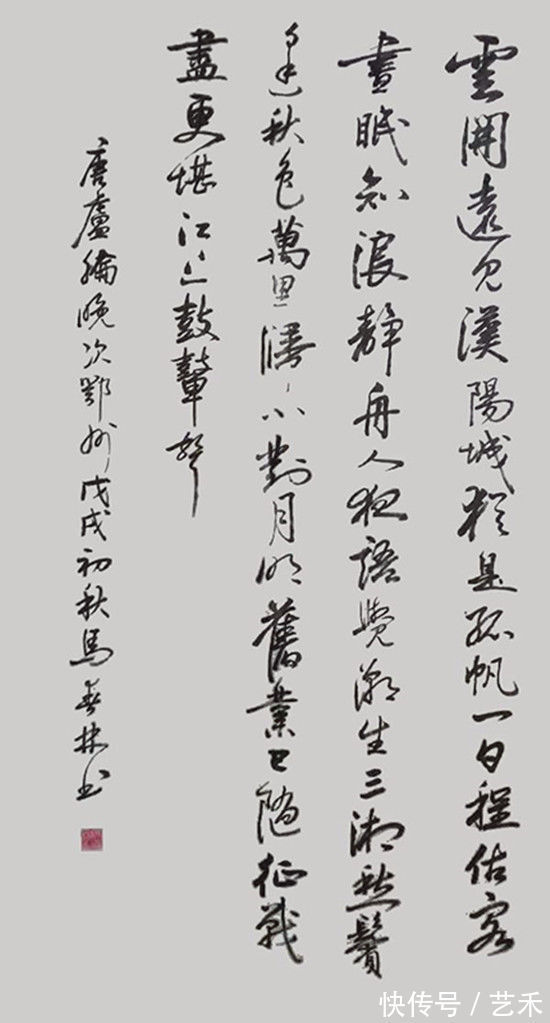 雲開遠見漢陽城猶是孤帆一日程估客
晝眠知浪靜舟人夜語覺潮生三湘愁鬢
逢秋色萬里歸心對月明舊業已隨征戰
盡更堪江上鼓鼙聲
唐盧綸晚次鄂州戊戌初秋馬林书
快传号 / 艺禾